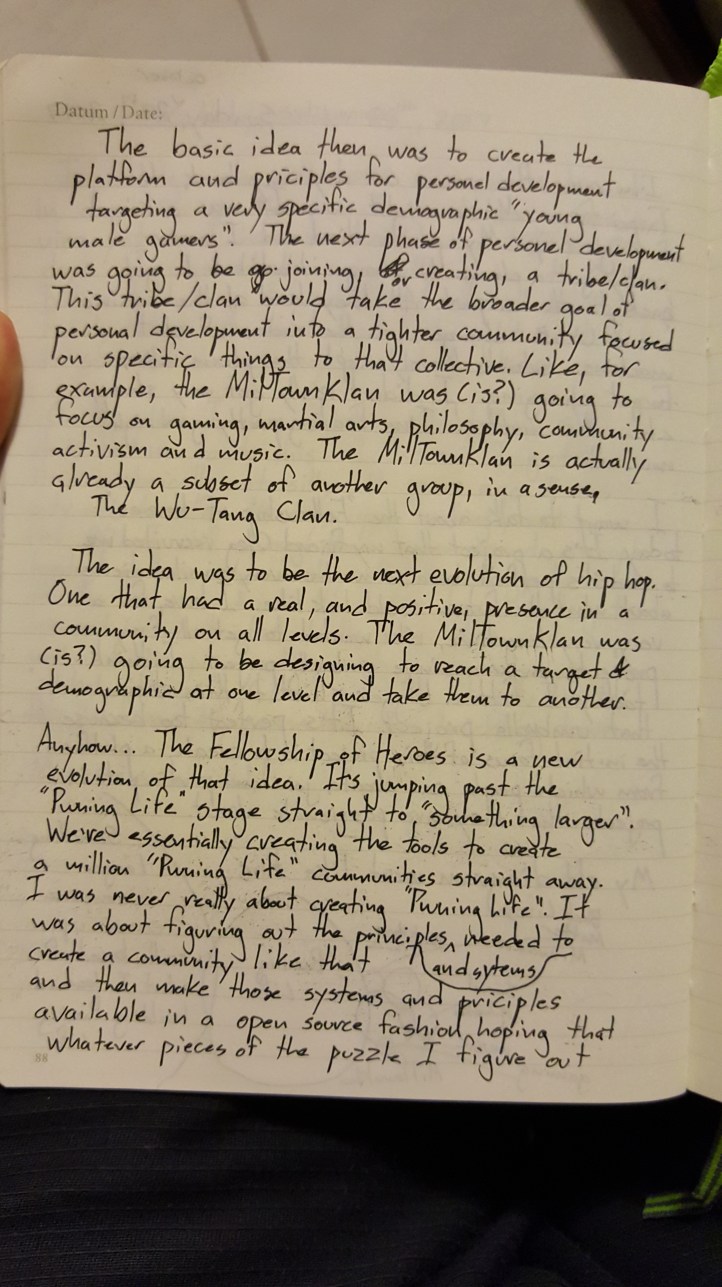 Datum / Date:
The basic idea then was to create the
platform and priciples for personel development
targeting a very specific demographic "young
male gamers". The next phase of personel development
was going to be joining, or creating, a tribe/clan.
This tribe/clan would take the broader goal of
personal development into a tighter community focused
on specific things to that collective. Like, for
example, the MilTownKlan was (is?) going to
focus on gaming, martial arts, philosophy, community
activism and music. The MilTownKlan is actually
already a subset of another group, in a sense,
The Wu-Tang Clan.
The idea was to be the next evolution of hip hop.
One that had a real, and positive, presence in a
community on all levels. The MilTownKlan was
(is?) going to be designing to reach a target
demographic at one level and take them to another.
Anyhow... The Fellowship of Heroes is a new
evolution of that idea. It's jumping past the
"Pwning Life" stage straight to "something larger".
We're essentially creating the tools to create
a million "Pwning Life" communities straight away.
I was never really about creating "Pwning Life". It
was about figuring out the principles ^ needed to
create a community like that and sytems
and then make those systems and priciples
available in a open source fashion hoping that
whatever pieces of the puzzle I figure out
88